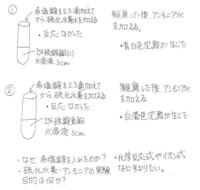 ①
希塩酸を2,3滴加えて
から硫化水素を加える。
・反応なかった
1%硫酸銅(II)
水溶液 3cm
観察した後、アンモニア水
を加える。
・青白色沈殿が生じた
②
希塩酸を2.3滴加えて
から硫化水素を加える。
・反応なかった
1%硫酸亜鉛
水溶液 3cm
観察した後、アンモニア水
を加える。
・白濁色沈殿が生じた
・なぜ、希塩酸を入れたのか?
・硫化水素・アンモニアの実験
目的は何か?
・化学反応式やイオン式
など知りたい。